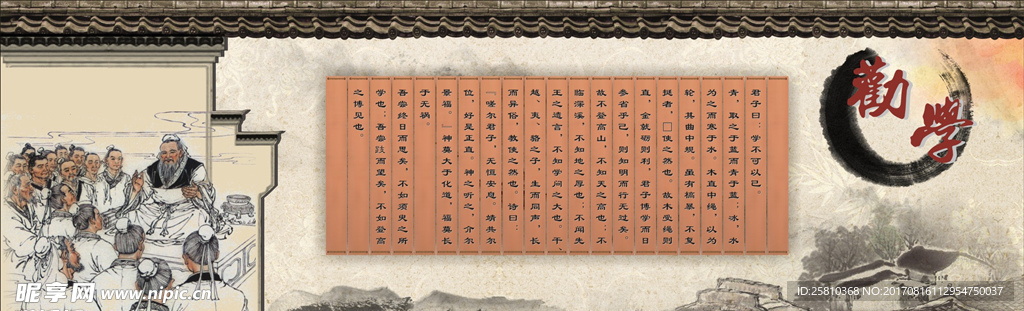 勸學
君子曰：学不可以已。
青，取之于蓝而青于蓝；冰，水
为之而寒于水。木直中绳，以为
轮，其曲中规。虽有槁暴，不复
挺者，□使之然也。故木受绳则
直，金就砺则利，君子博学而日
参省乎已，则知明而行无过矣。
故不登高山，不知天之高也；不
临深溪，不知地之厚也；不闻先
王之遗言，不知学问之大也。干
越、夷、貉之子，生而同声，长
而异俗，教使之然也。诗曰：
『嗟尔君子，无恒安息。靖共尔
位，好是正直。神之听之，介尔
景福。』神莫大于化道，福莫长
于无祸。
吾尝终日而思矣，不如须臾之所
学也；吾尝跂而望矣，不如登高
之博见也。
昵享网 www.nipic.cn
ID:25810368 NO:20170816112954750037